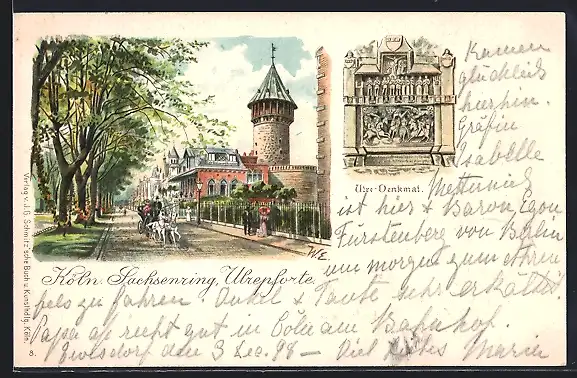 Kamen
glücklich
hierhin.
Gräfin
Isabelle
Metternich
ist hier & Baron Egon
Fürstenberg von Berlin
um morgen zum
Ulre-Denkmal.
Köln. Sachsenring, Ulrepforte.
W.E.
zu fahren Onkel & Tante sehr erkältet
Papa gut in Cöln am Bahnhof.
den 3 Dec. 98 – Viel Liebes Marie
Verlag v. J.G. Schmitz'sche Buch u. Kunsthdlg. Köln.
8.